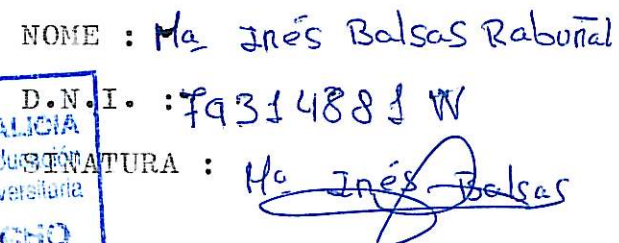 NOME : Mª Inés Balsas Rabuñal
D.N.I. : 79314881 W
SINATURA : Mª Inés Balsas